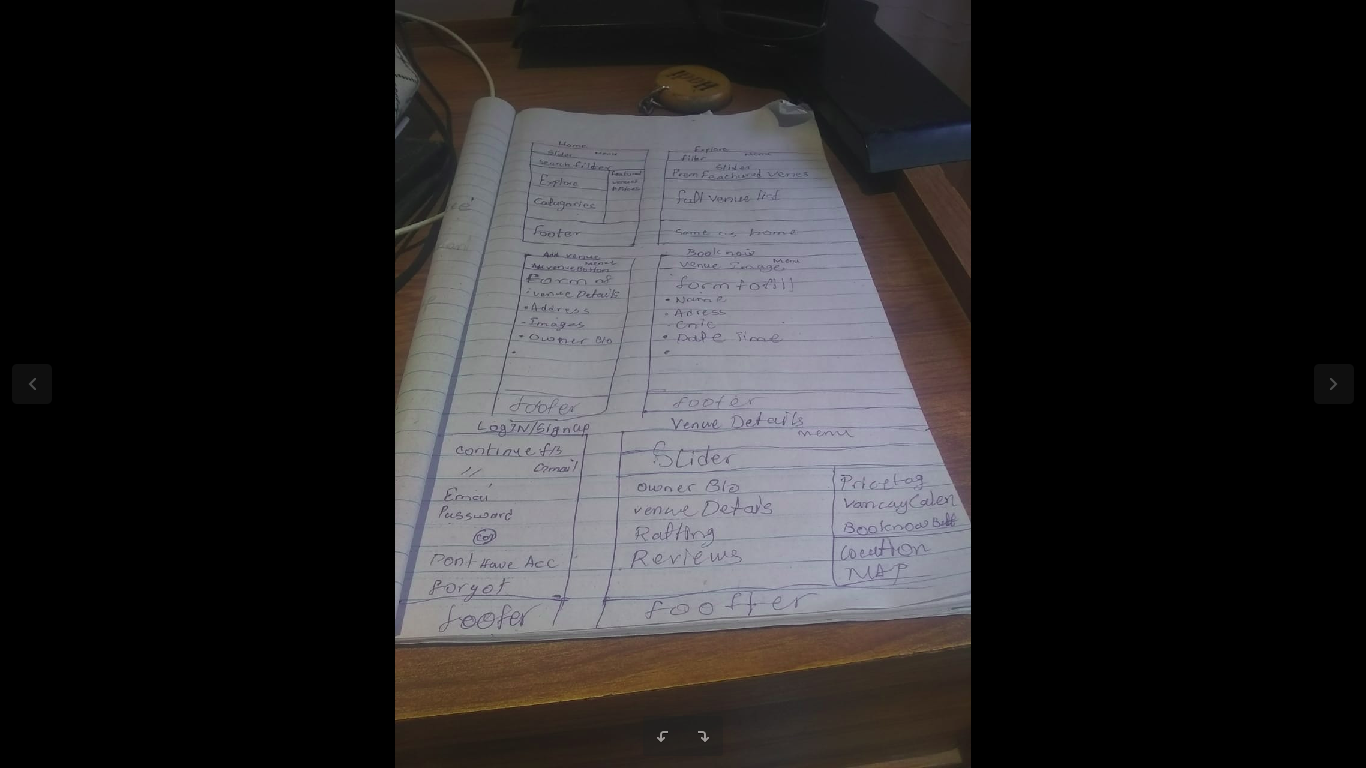 Home
Slider menu
Search filter
Explore
Featured
venues
Categories
footer
Explore
filter
Slider
From Feachured Venes
full venue list
Same as home
Add Venue
Menu
Form of
venue Details
Address
Images
Owner Bio
footer
Book now
Menu
venue Image
form to fill
Name
Adress
Cnic
Date Time
footer
LogIN/Signup
continue f/B
// Gmail
Email
Password
Dont Have Acc
forgot
foofer
Venue Details
menu
Slider
Owner Bio
venue Details
Ratting
Reviews
Pricetag
Booknow Butt
Location
MAP
foofter